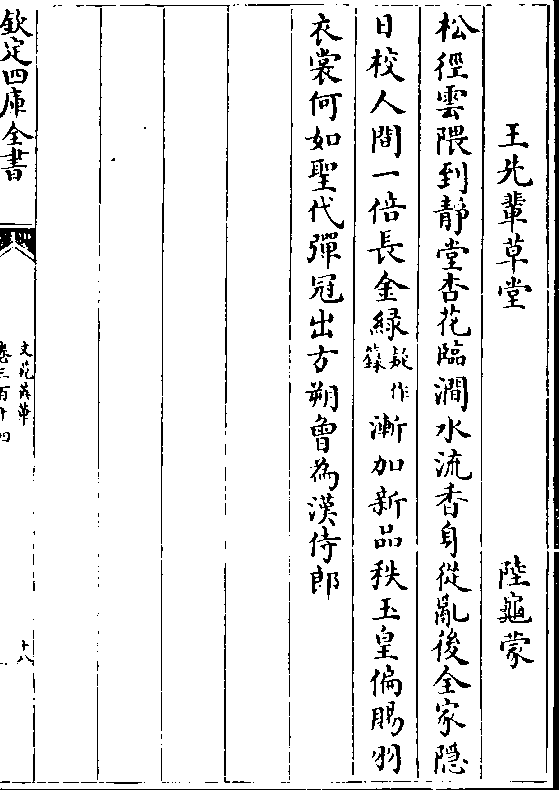 王先輩草堂 陸龜蒙
松徑雲隈到靜堂杏花臨澗水流香身從亂後全家隱
日校人間一倍長金緑疑作籙漸加新品秩玉皇偏賜羽
衣裳何如聖代彈冠出方朔曾為漢侍郎
欽定四庫全書
文苑英華
卷三百十四
十八